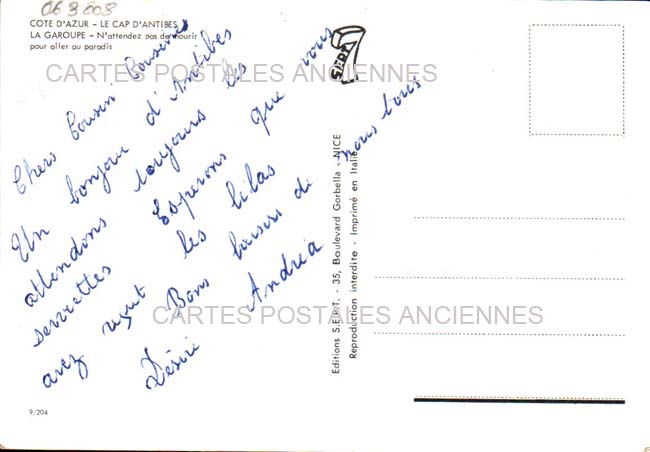 06 3 603
COTE D'AZUR - LE CAP D'ANTIBES
LA GAROUPE - N'attendez pas de mourir
pour aller au paradis
Chers Cousin Cousines
Un bonjour d'Antibes
attendons toujours les
serviettes Esperons que vous
avez reçut les lilas
Bons baisers de nous tous
Désiré Andréa
SEPT
Editions S.E.P.T. - 35, Boulevard Gorbella - NICE
Reproduction interdite - Imprimé en Italie
CARTES POSTALES ANCIENNES
CARTES POSTALES ANCIENNES
9/204